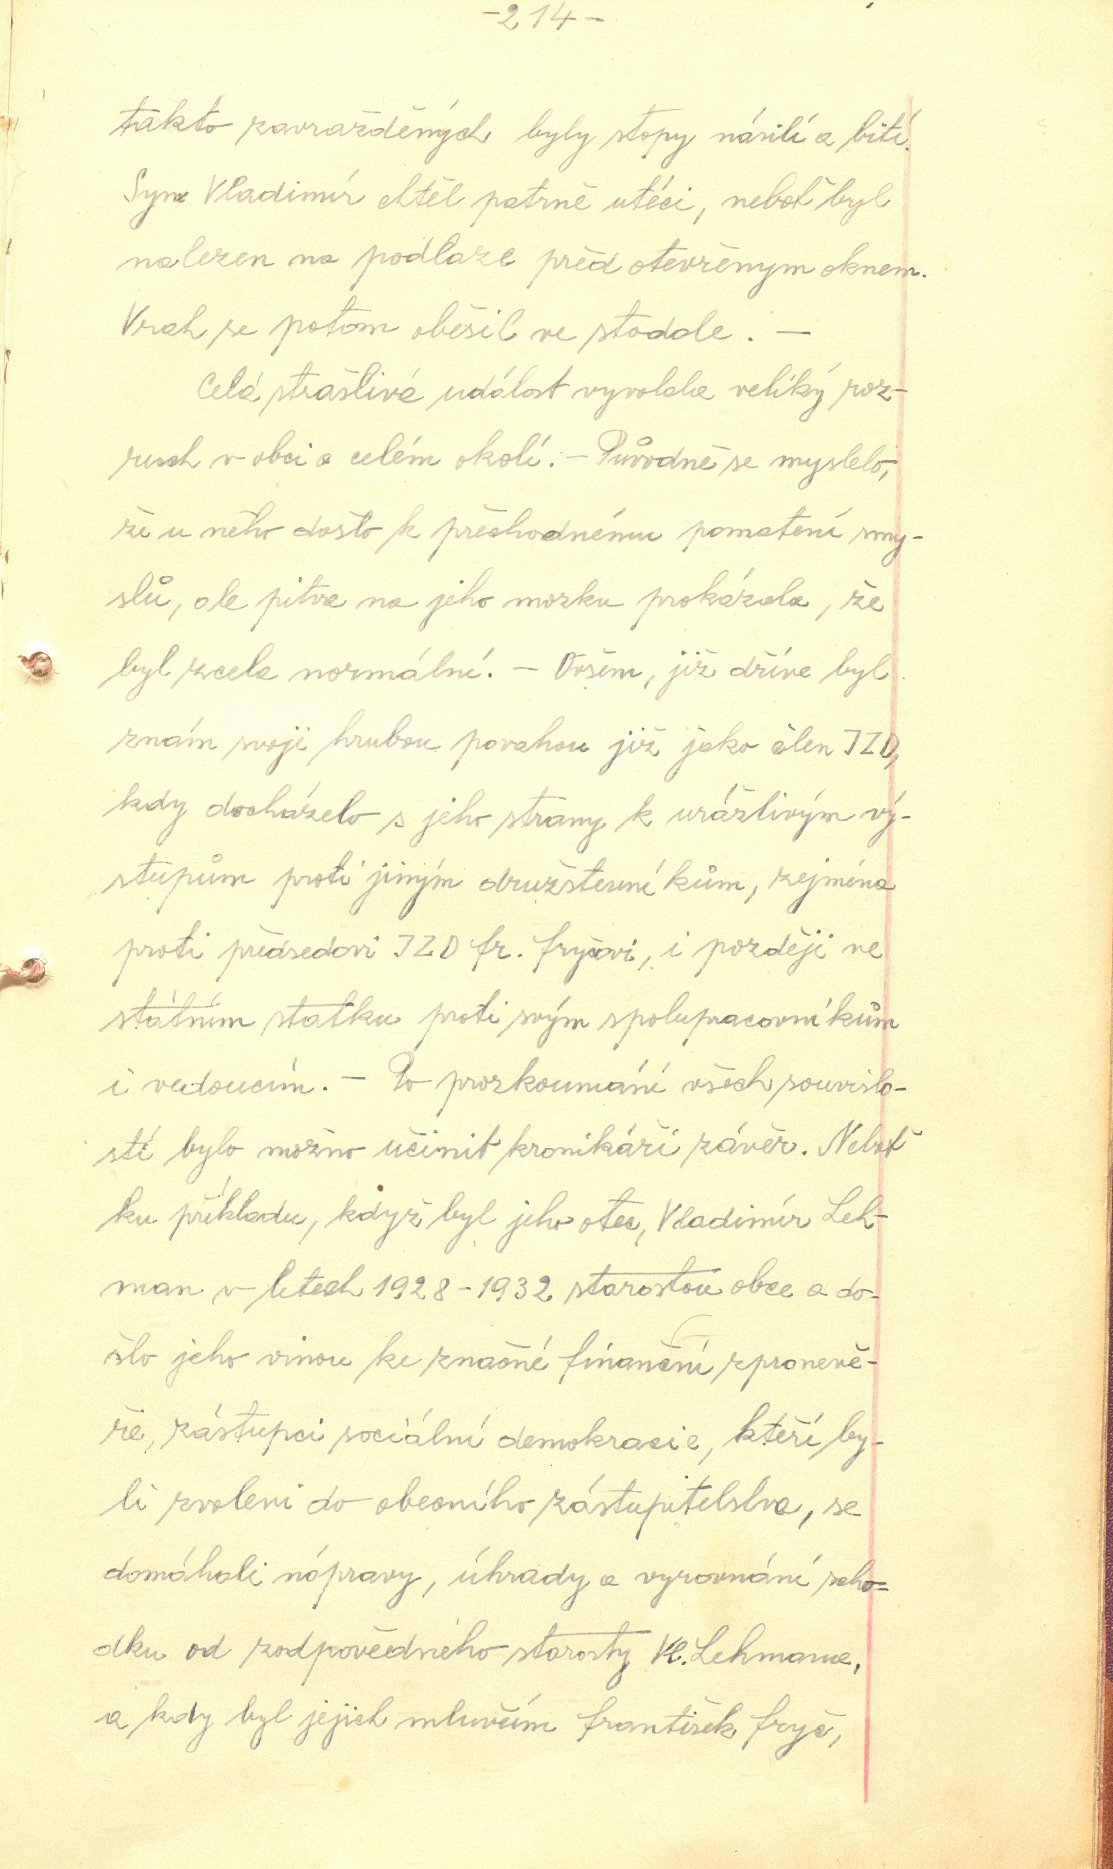 -214-
takto zavražděných byly stopy násilí a bití.
Syn Vladimír chtěl patrně utéci, neboť byl
nalezen na podlaze před otevřeným oknem.
Vrah se potom oběsil ve stodole. —
Celá strašlivá událost vyvolala veliký roz-
ruch v obci a celém okolí. — Původně se myslelo,
že u něho došlo k přechodnému pomatení smy-
slů, ale pitva na jeho mozku prokázala, že
byl zcela normální. — Ovšem, již dříve byl
znám svojí hrubou povahou již jako člen JZD,
kdy docházelo s jeho strany k urážlivým vý-
stupům proti jiným družstevníkům, zejména
proti předsedovi JZD Fr. Fryčovi, i později ve
státním statku proti svým spolupracovníkům
i vedoucím. — Po prozkoumání všech souvislo-
stí bylo možno učinit kronikáři závěr. Neboť
ku příkladu, když byl jeho otec, Vladimír Leh-
man v letech 1928-1932 starostou obce a do-
šlo jeho vinou ke značné finanční zpronevě-
ře, zástupci sociální demokracie, kteří by-
li zvoleni do obecního zástupitelstva, se
domáhali nápravy, úhrady a vyrovnání scho-
dku od zodpovědného starosty Vl. Lehmana,
a kdy byl jejich mluvčím František Fryč,